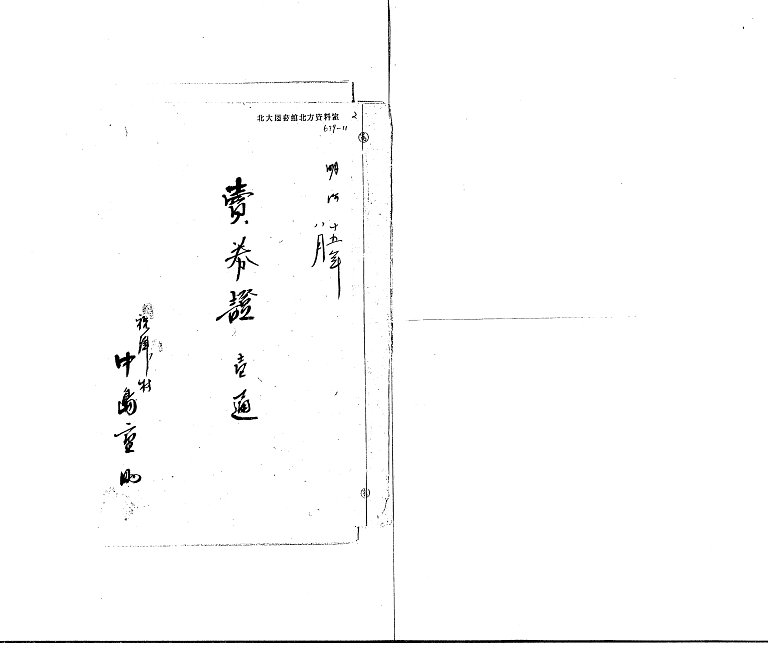 北大図書館北方資料室
2
679-11
明治十五年
八月
賣券證 壹通
中島重助